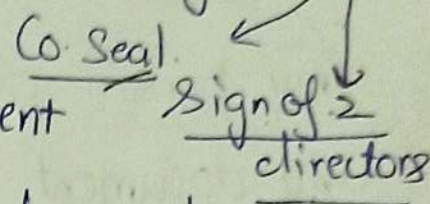 Co. Seal
ent Sign of 2
directors